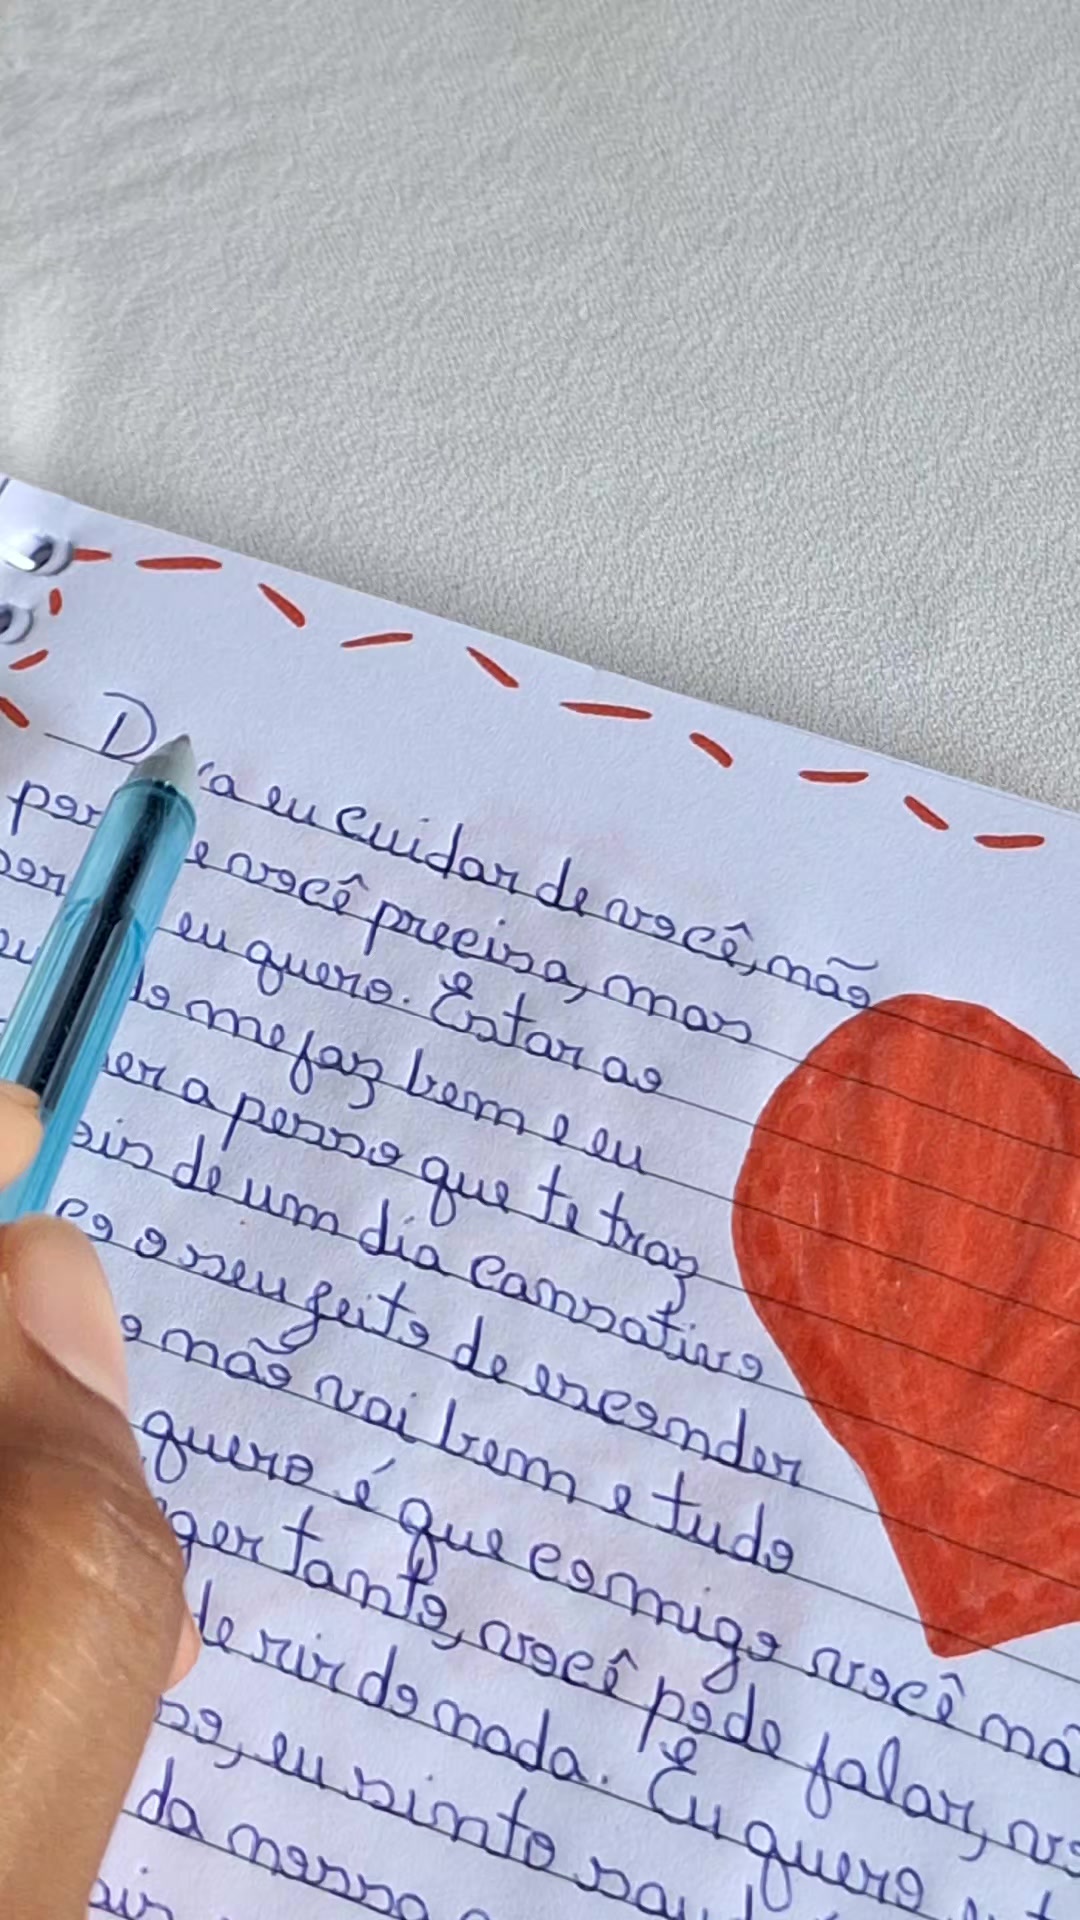 eu cuidar de você, não
você precisa, mas
eu quero. Estar ao
me faz bem e eu
a pesso que te traz
de um dia cansativo
o seu jeito de esconder
não vai bem e tudo
quero é que comigo você
tanto, você pode falar,
de rir do nada. Eu quero
eu sinto
da nossa